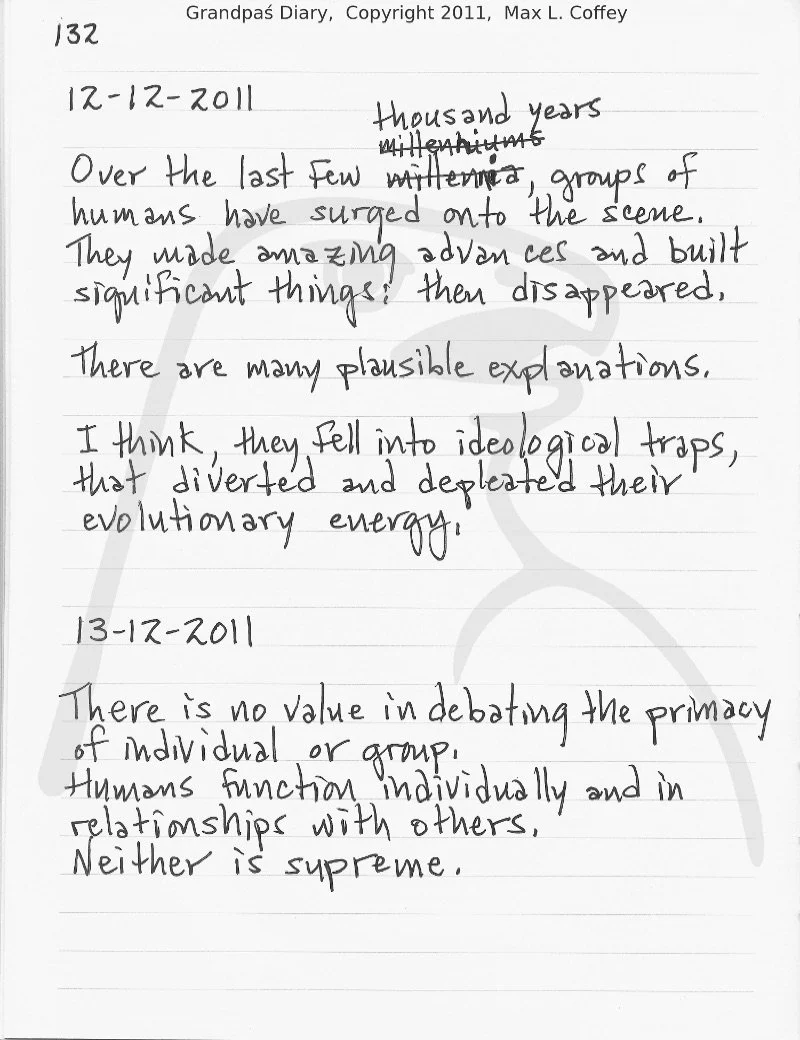 Grandpaś Diary, Copyright 2011, Max L. Coffey
132
12-12-2011
thousand years
millenniums
Over the last few millennia, groups of
humans have surged onto the scene.
They made amazing advances and built
significant things; then disappeared.
There are many plausible explanations.
I think, they fell into ideological traps,
that diverted and depleated their
evolutionary energy.
13-12-2011
There is no value in debating the primacy
of individual or group.
Humans function individually and in
relationships with others.
Neither is supreme.